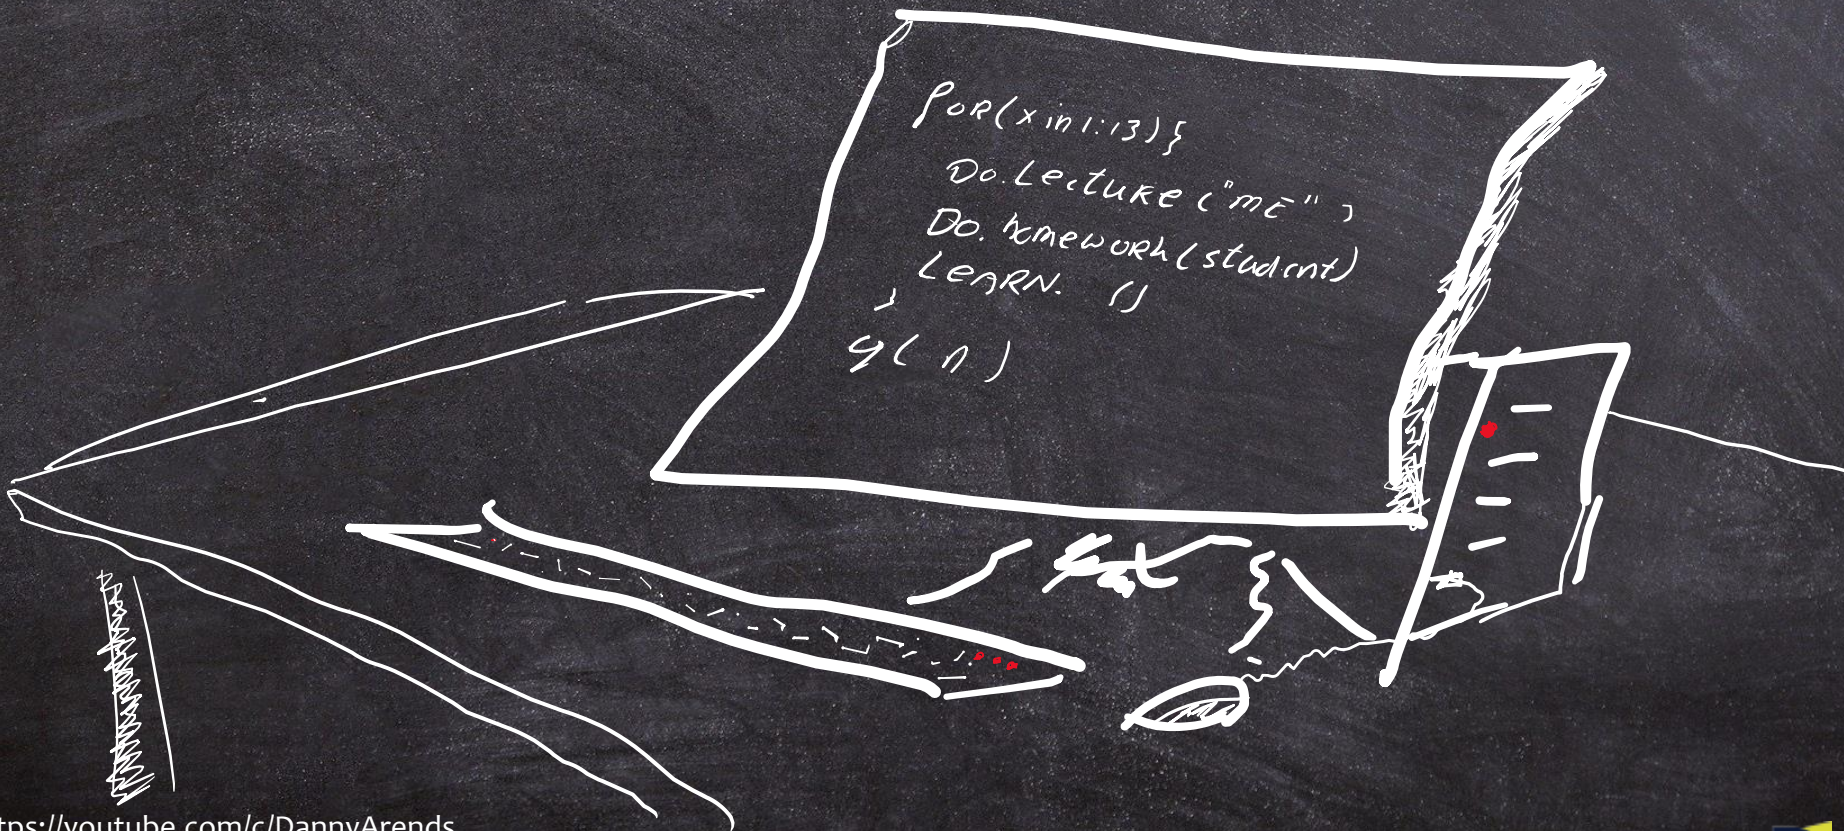 for(x in 1:13){
Do.Lecture("ME")
Do.homework(student)
LEARN. ()
}
q(n)
ttps://youtube.com/c/DannyArends